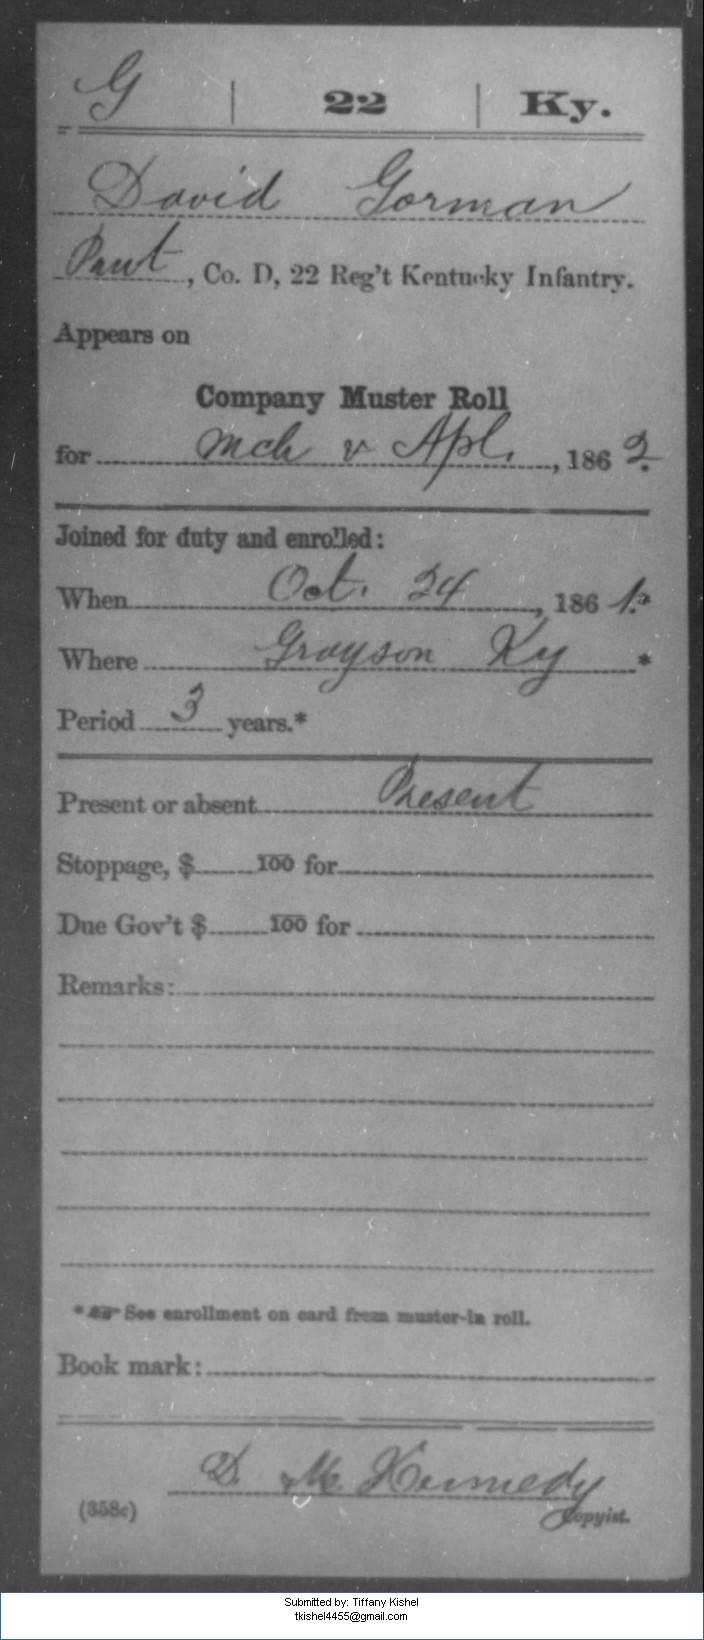 G | 22 | Ky.
David Gorman
Pvt, Co. D, 22 Reg't Kentucky Infantry.
Appears on
Company Muster Roll
for Mch & Apl., 1862.
Joined for duty and enrolled:
When Oct. 24, 1861.*
Where Grayson Ky *
Period 3 years.*
Present or absent Present
Stoppage, $ 100 for
Due Gov't $ 100 for
Remarks:
* See enrollment on card from muster-in roll.
Book mark:
D. M. Kennedy
(358c) Copyist.
Submitted by: Tiffany Kishel
tkishel4455@gmail.com